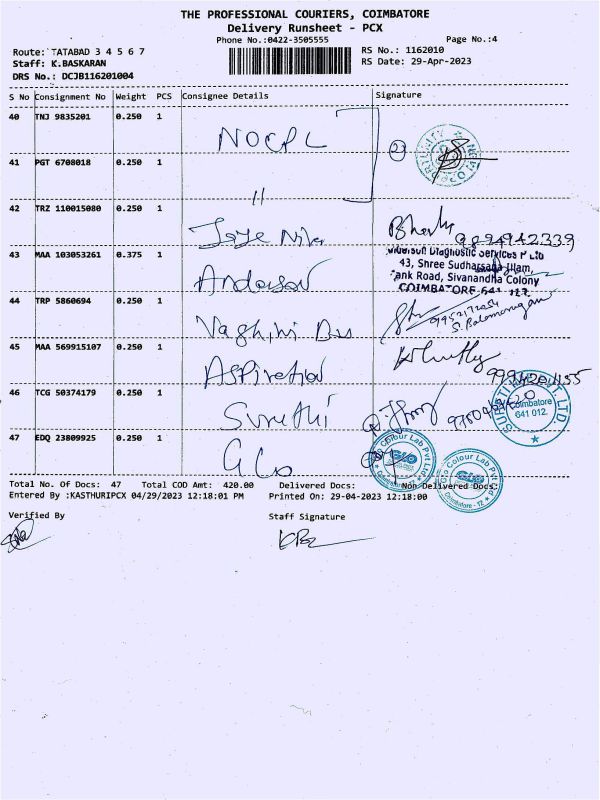 THE PROFESSIONAL COURIERS, COIMBATORE
Delivery Runsheet - PCX
Phone No.:0422-3505555
Page No.:4
Route: TATABAD 3 4 5 6 7
RS No.: 1162010
Staff: K.BASKARAN
RS Date: 29-Apr-2023
DRS No.: DCJB116201004
S No Consignment No Weight PCS Consignee Details Signature
40 TNJ 9835201 0.250 1
NOCPL
23
41 PGT 6708018 0.250 1
"
42 TRZ 110015080 0.250 1
9894942339
43 MAA 103053261 0.375 1
Anderson
Diagnostic Services P Ltd
43, Shree Sudharsana Illam,
Tank Road, Sivanandha Colony
COIMBATORE-641 012.
44 TRP 5860694 0.250 1
45 MAA 569915107 0.250 1
Aspiration
46 TCG 50374179 0.250 1
Suruthi
Coimbatore
641 012.
PVT. LTD.
47 EDQ 23809925 0.250 1
Glo
Colour Lab Pvt Ltd
GLO
Colour Lab Pvt Ltd
GLO
Coimbatore - 12
Total No. Of Docs: 47 Total COD Amt: 420.00 Delivered Docs: Non Delivered Docs:
Entered By :KASTHURIPCX 04/29/2023 12:18:01 PM Printed On: 29-04-2023 12:18:00
Verified By
Staff Signature